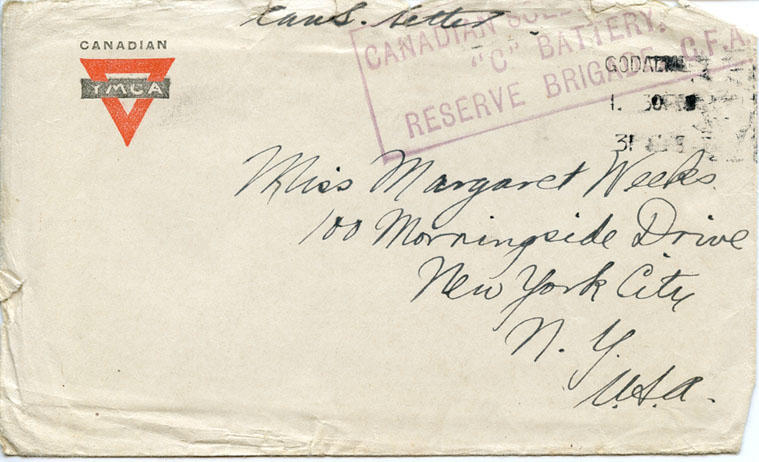 Can S. Letter
CANADIAN
YMCA
CANADIAN
"C" BATTERY.
RESERVE BRIGADE C.F.A
Miss Margaret Weeks
100 Morningside Drive
New York City
N. Y.
U.S.A.